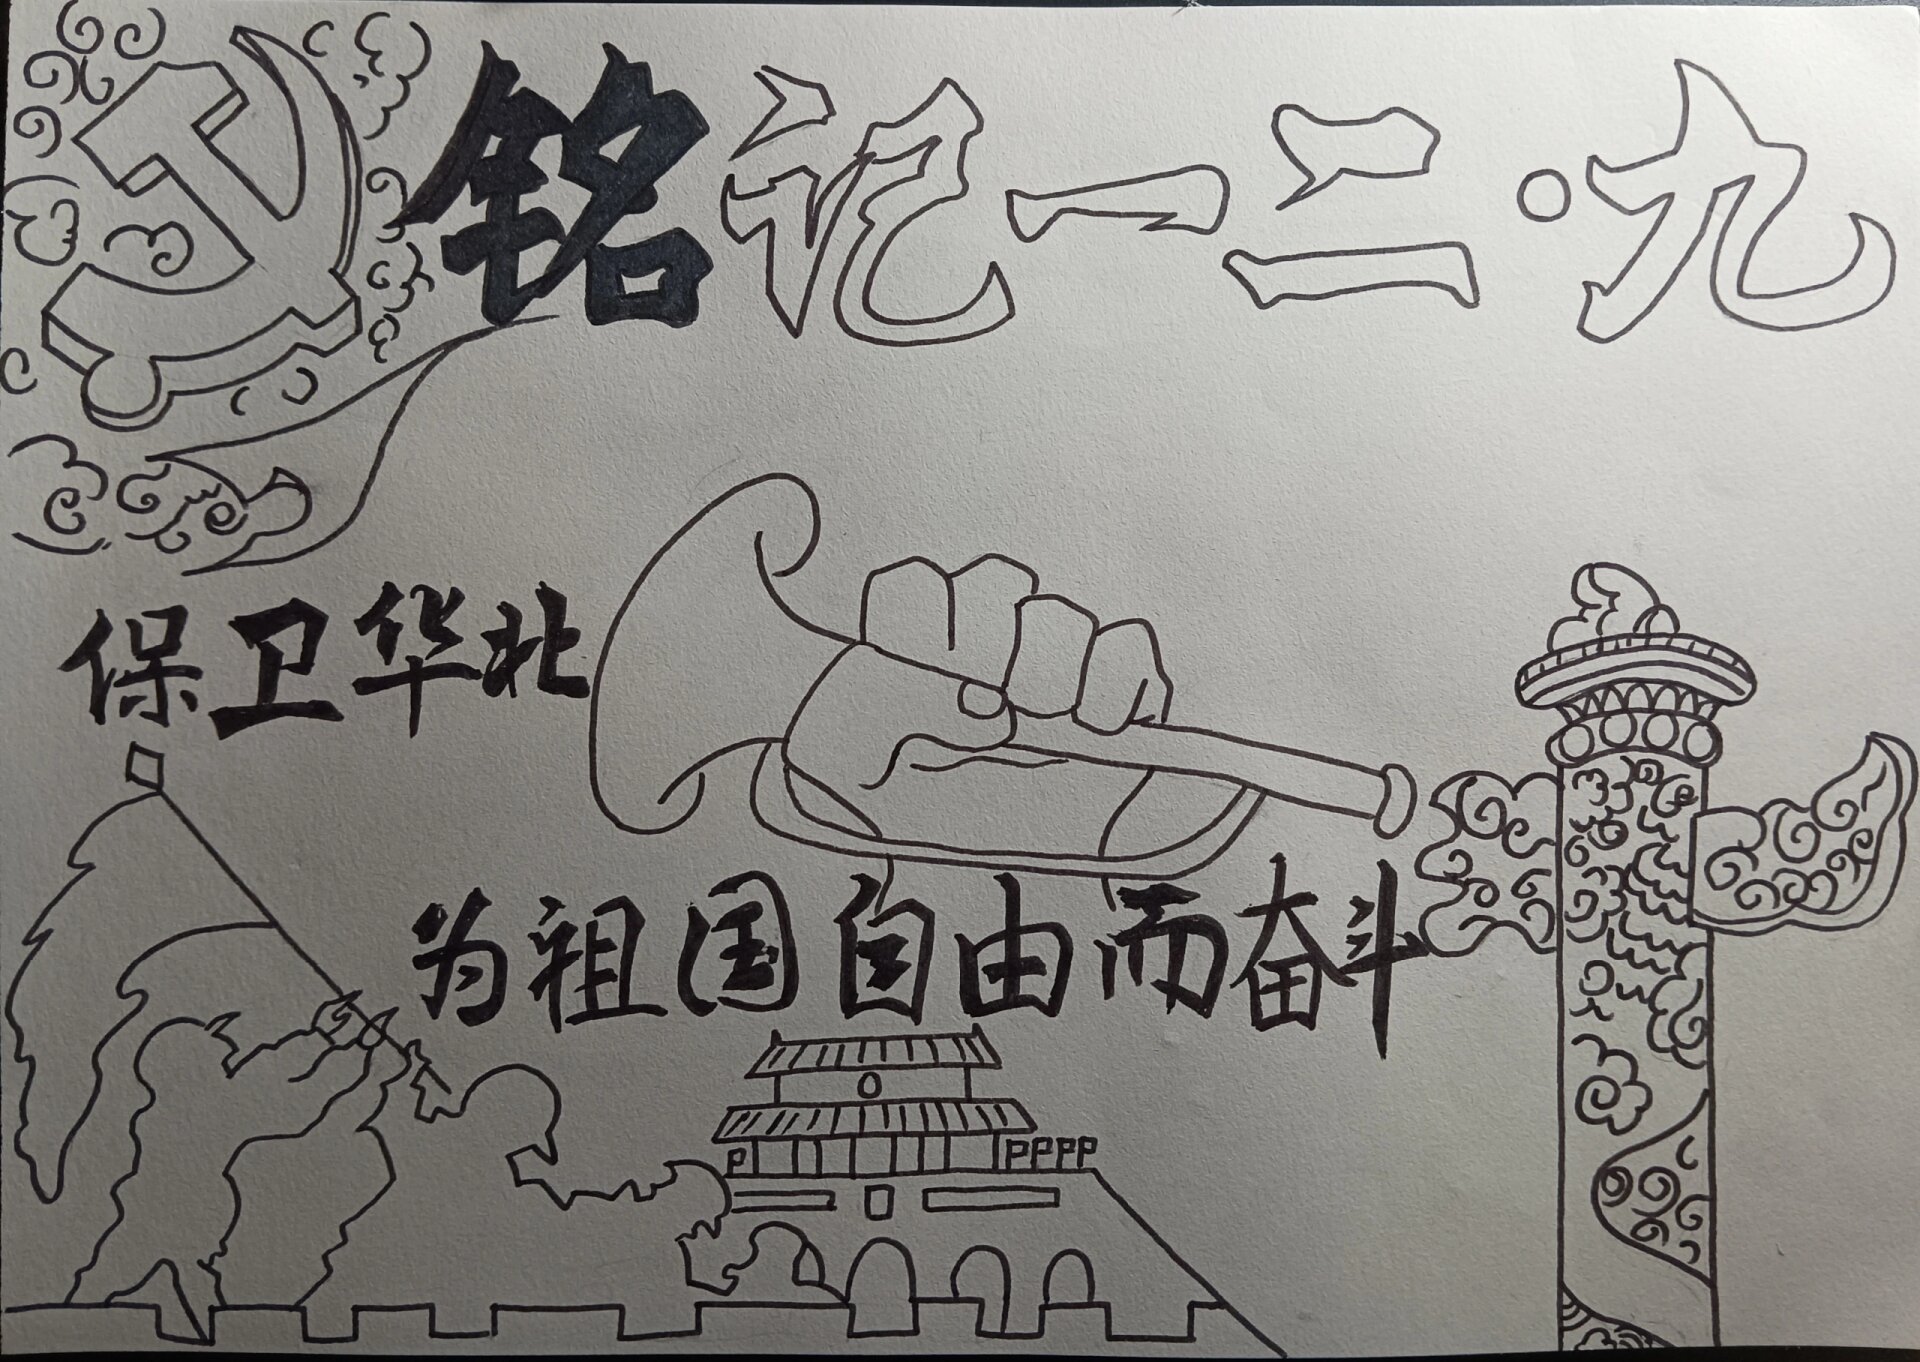 铭记一二·九
保卫华北
为祖国自由而奋斗